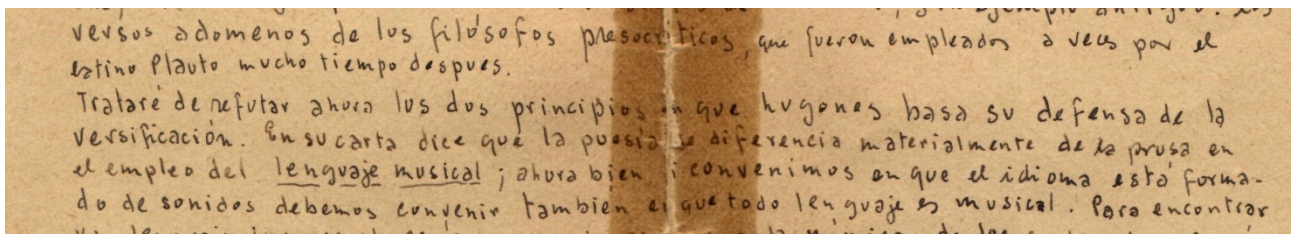 ejemplo antiguo: los
versos adomenos de los filósofos presocráticos, que fueron empleados a veces por el
latino Plauto mucho tiempo despues.
Trataré de refutar ahora los dos principios en que Lugones basa su defensa de la
versificación. En su carta dice que la poesía se diferencia materialmente de la prosa en
el empleo del lenguaje musical; ahora bien si convenimos en que el idioma está forma-
do de sonidos debemos convenir tambien en que todo lenguaje es musical. Para encontrar